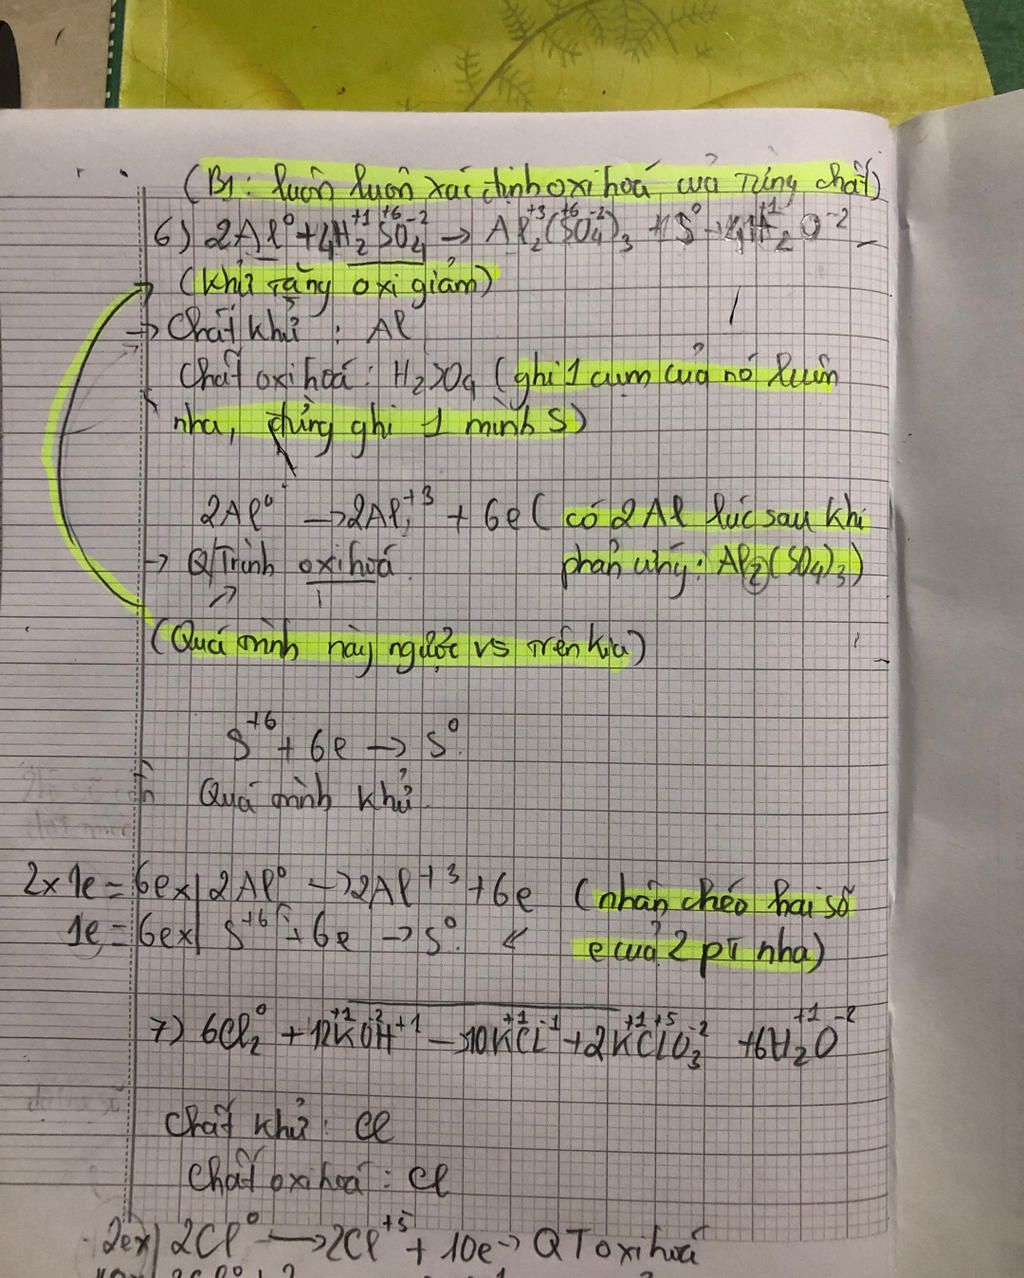 (B1: luôn luôn xác định oxi hoá của từng chất)
6) 2Al⁰ + 4H₂⁺¹S⁺⁶O₄⁻² → Al₂⁺³(S⁺⁶O₄⁻²)₃ + 1S⁰ + 4H₂⁺¹O⁻²
(khử tăng oxi giảm)
→ Chất khử : Al
Chất oxi hoá : H₂SO₄ (ghi 1 cụm của nó luôn
nha, đừng ghi 1 mình S)
2Al⁰ → 2Al⁺³ + 6e ( có 2Al lúc sau khi
→ Q/Trình oxi hoá. phản ứng: Al₂(SO₄)₃)
(Quá trình này ngược vs trên kia)
S⁺⁶ + 6e → S⁰.
Quá trình khử
2x 1e = 6ex| 2Al⁰ → 2Al⁺³ + 6e (nhân chéo hai số
1e = 6ex| S⁺⁶ + 6e → S⁰. e của 2 pt nha)
7) 6Cl₂⁰ + 12K⁺¹O⁻²H⁺¹ → 10K⁺¹Cl⁻¹ + 2K⁺¹Cl⁺⁵O₃⁻² + 6H₂⁺¹O⁻²
Chất khử : Cl
Chất oxi hoá : Cl
2ex| 2Cl⁰ → 2Cl⁺⁵ + 10e → QT oxi hoá